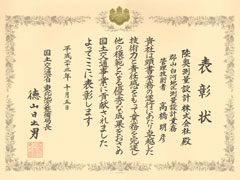 表彰状
陸奥測量設計株式会社 殿
郡山白河地区測量設計業務
管理技術者 高橋明彦
貴社は頭書業務の遂行にあたり卓越した
技術力と責任感をもって業務を完遂し
他の模範となる優秀な成果をおさめ
国土交通事業に貢献されました
よってここに表彰します
平成二十三年十月五日
国土交通省 東北地方整備局長
徳山日出男